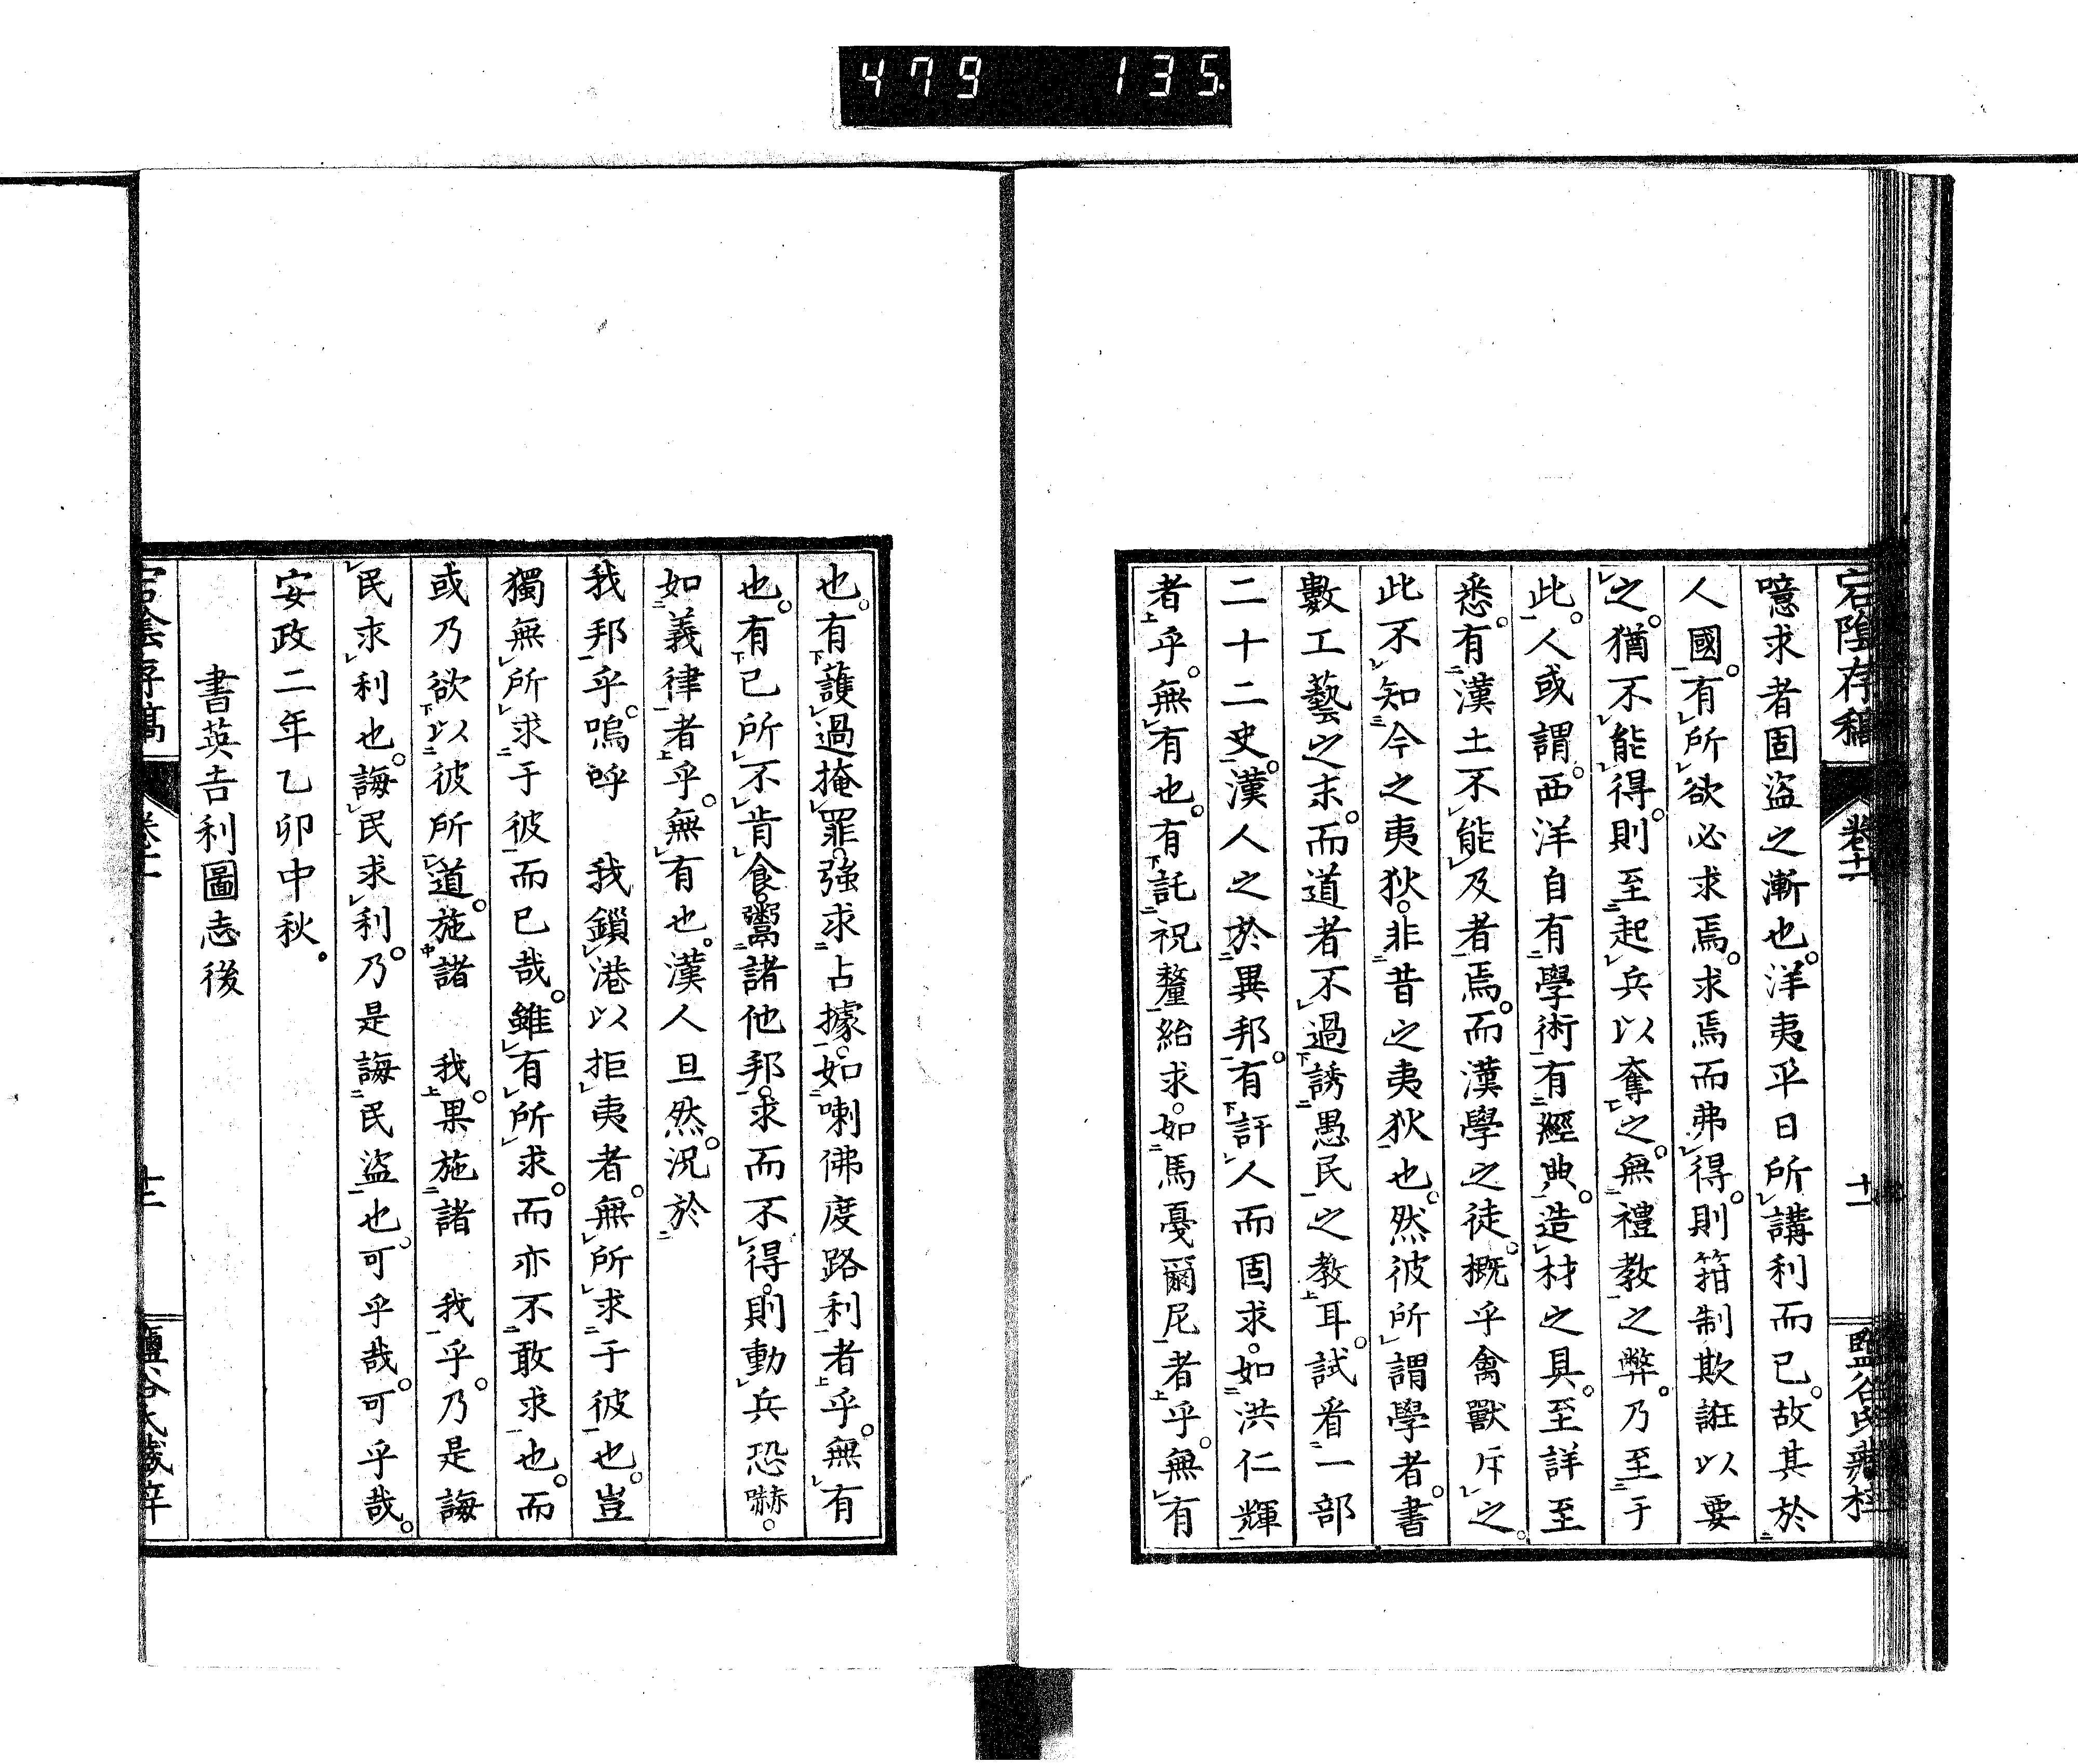 479 135
宕陰存稿 卷十一 十一 鹽谷氏藏梓
噫求者固盜之漸也。洋夷平日所講利而已。故其於
人國。有所欲必求焉。求焉而弗得。則箝制欺誑以要
之。猶不能得。則至起兵以奪之。無禮教之弊。乃至于
此。人或謂。西洋自有學術有經典。造材之具。至詳至
悉。有漢土不能及者焉。而漢學之徒。概乎禽獸斥之。
此不知今之夷狄。非昔之夷狄也。然彼所謂學者。書
數工藝之末。而道者不過誘愚民之教耳。試看一部
二十二史。漢人之於異邦。有訐人而固求。如洪仁輝
者乎。無有也。有託祝釐紿求。如馬戛爾尼者乎。無有
也。有護過掩罪。強求占據。如喇佛度路利者乎。無有
也。有已所不肯食。鬻諸他邦。求而不得。則動兵恐嚇。
如義律者乎。無有也。漢人且然。況於
我邦乎。嗚呼 我鎖港以拒夷者。無所求于彼也。豈
獨無所求于彼而已哉。雖有所求。而亦不敢求也。而
或乃欲以彼所道。施諸 我。果施諸 我乎。乃是誨
民求利也。誨民求利。乃是誨民盜也。可乎哉。可乎哉。
安政二年乙卯中秋。
書英吉利圖志後
宕陰存稿 卷十一 十二 鹽谷氏藏梓